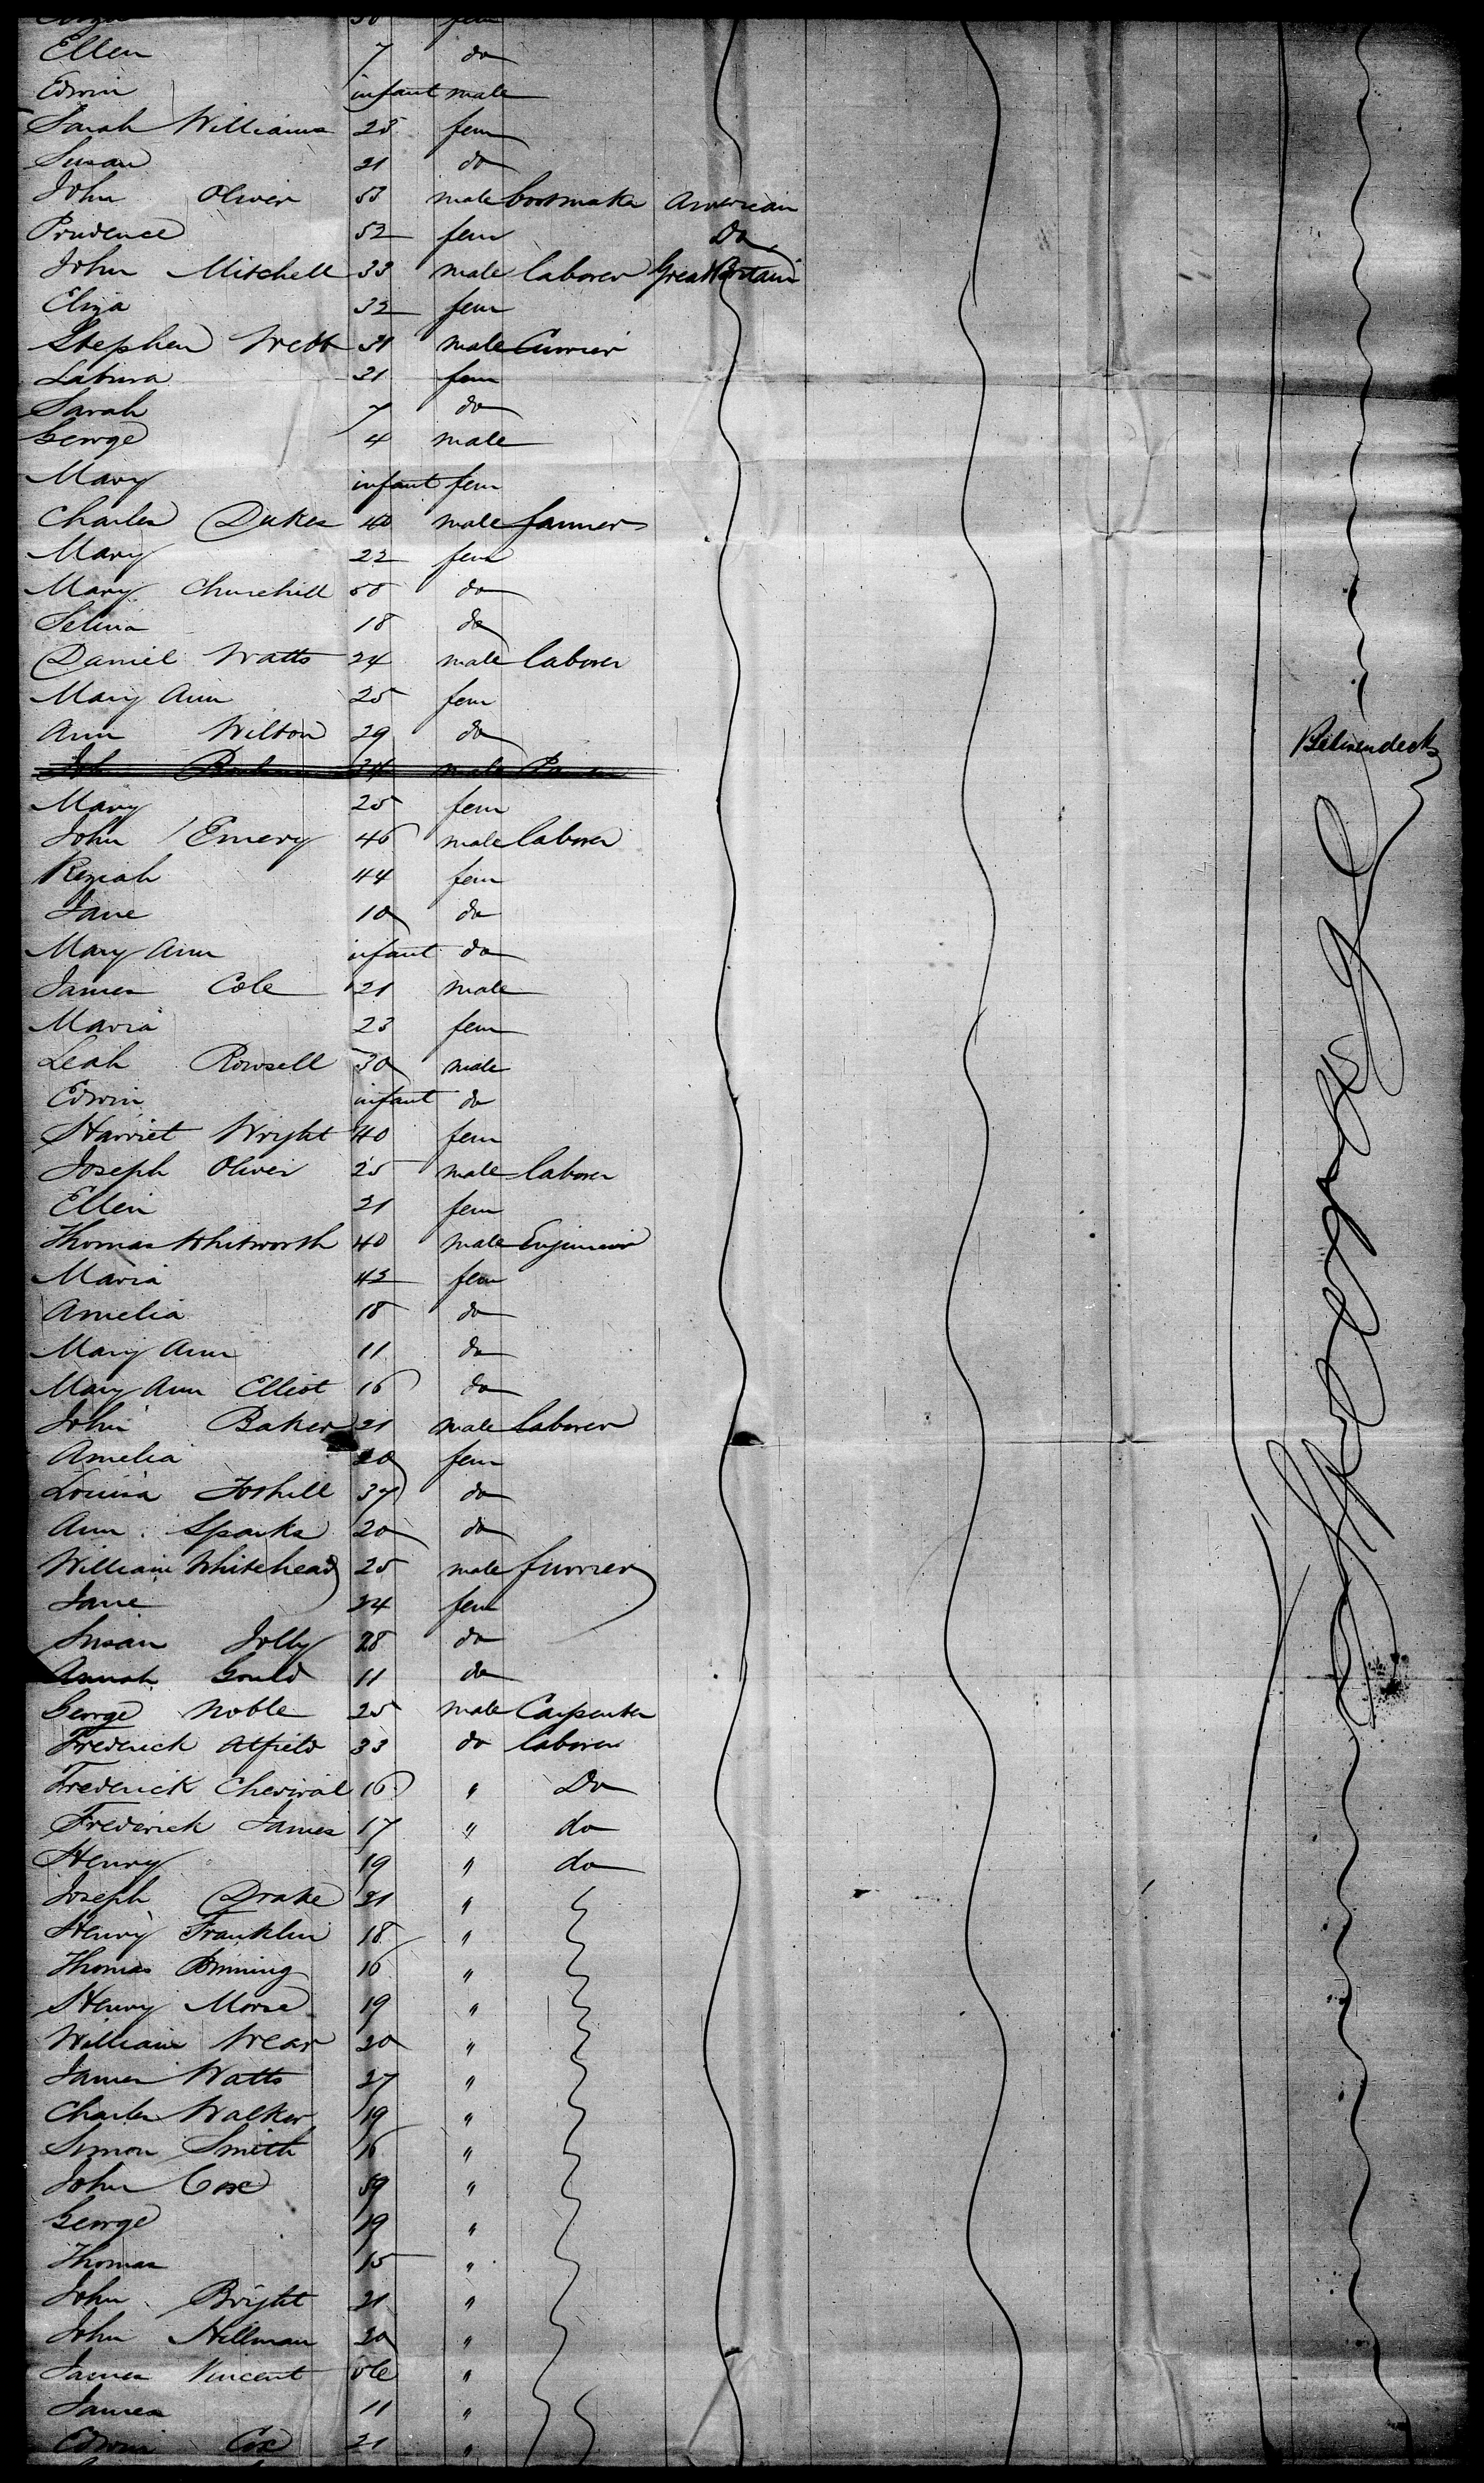 Ellen 7 do
Edwin infant male
Sarah Williams 28 fem
Susan 21 do
John Oliver 53 male bootmaker American
Prudence 52 fem Do
John Mitchell 33 male laborer Great Britain
Eliza 32 fem
Stephen Webb 31 male Currier
31 fem
Sarah 7 do
George 4 male
Mary infant fem
Charles Dukes 40 male farmer
Mary 22 fem
Mary Churchill 58 do
Selina 18 do
Daniel Watts 24 male laborer
Mary Ann 25 fem
Ann Wilton 29 do
Between decks
34 male
Mary 25 fem
John Emery 46 male laborer
Keziah 44 fem
Jane 10 do
Mary Ann infant do
James Cole 21 male
Maria 23 fem
Leah Rowsell 30 male
Edwin infant do
Harriet Wright 40 fem
Joseph Oliver 25 male laborer
Ellen 21 fem
Thomas Whitworth 40 male Engineer
Maria 42 fem
Amelia 18 do
Mary Ann 11 do
Mary Ann Elliot 16 do
John Baker 21 male laborer
Amelia 20 fem
Louisa 37 do
Ann Sparks 20 do
William Whitehead 25 male furrier
Jane 24 fem
Susan Jolly 28 do
Gould 11 do
George Noble 25 male Carpenter
Frederick Atfield 33 do laborer
Frederick 16 " Do
Frederick James 17 " do
Henry 19 " do
Joseph Drake 21 "
Henry Franklin 18 "
Thomas 16 "
Henry Morse 19 "
William Wear 20 "
James Watts 27 "
Charles Walker 19 "
Simon Smith 16 "
John Cox 59 "
George 19 "
Thomas 15 "
John Bright 21 "
John Hillman 20 "
James Vincent "
James 11 "
Edwin Cox 21 "